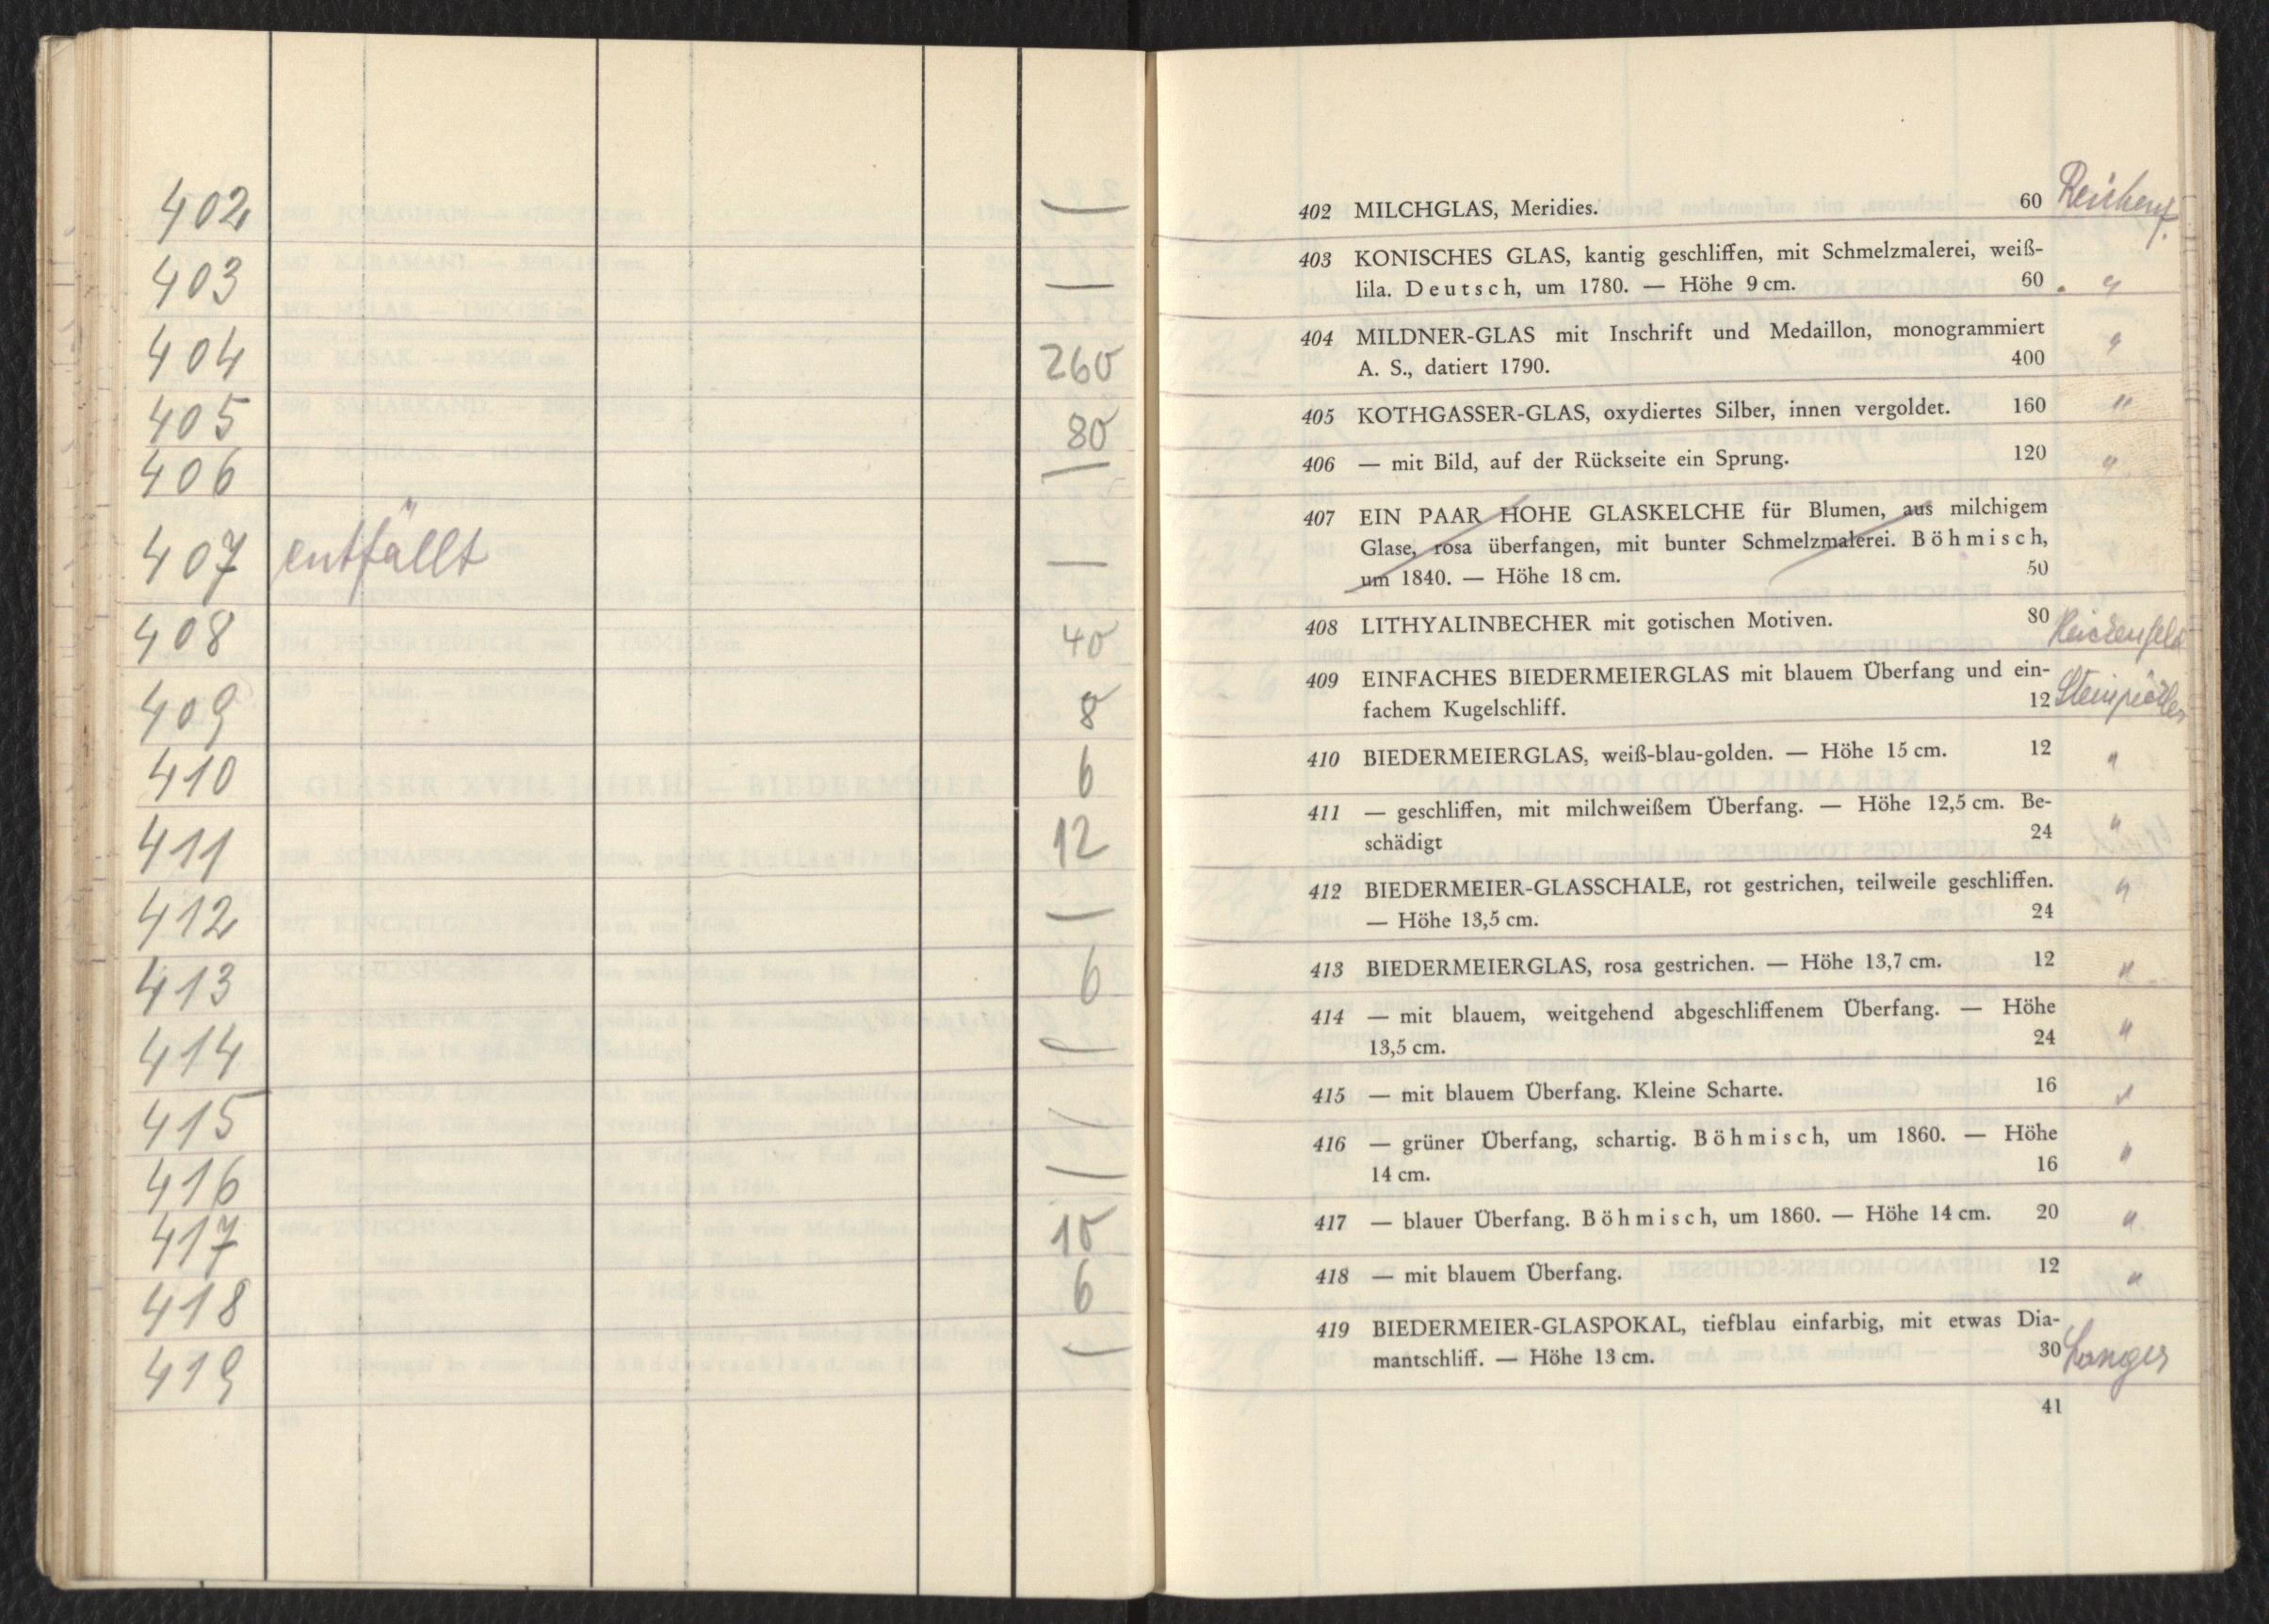 402 —
403 —
404 260
405 80
406 —
407 entfällt —
408 40
409 8
410 6
411 12
412 —
413 6
414 —
415 —
416 —
417 10
418 6
419 —
402 MILCHGLAS, Meridies. 60
403 KONISCHES GLAS, kantig geschliffen, mit Schmelzmalerei, weiß-
lila. Deutsch, um 1780. — Höhe 9 cm. 60 "
404 MILDNER-GLAS mit Inschrift und Medaillon, monogrammiert "
A. S., datiert 1790. 400
405 KOTHGASSER-GLAS, oxydiertes Silber, innen vergoldet. 160 "
406 — mit Bild, auf der Rückseite ein Sprung. 120 "
407 EIN PAAR HOHE GLASKELCHE für Blumen, aus milchigem
Glase, rosa überfangen, mit bunter Schmelzmalerei. Böhmisch,
um 1840. — Höhe 18 cm. 50
408 LITHYALINBECHER mit gotischen Motiven. 80 Reichenfeld
409 EINFACHES BIEDERMEIERGLAS mit blauem Überfang und ein-
fachem Kugelschliff. 12
410 BIEDERMEIERGLAS, weiß-blau-golden. — Höhe 15 cm. 12 "
411 — geschliffen, mit milchweißem Überfang. — Höhe 12,5 cm. Be-
schädigt 24 "
412 BIEDERMEIER-GLASSCHALE, rot gestrichen, teilweile geschliffen. "
— Höhe 13,5 cm. 24
413 BIEDERMEIERGLAS, rosa gestrichen. — Höhe 13,7 cm. 12 "
414 — mit blauem, weitgehend abgeschliffenem Überfang. — Höhe
13,5 cm. 24 "
415 — mit blauem Überfang. Kleine Scharte. 16 "
416 — grüner Überfang, schartig. Böhmisch, um 1860. — Höhe
14 cm. 16 "
417 — blauer Überfang. Böhmisch, um 1860. — Höhe 14 cm. 20 "
418 — mit blauem Überfang. 12 "
419 BIEDERMEIER-GLASPOKAL, tiefblau einfarbig, mit etwas Dia-
mantschliff. — Höhe 13 cm. 30 Langer
41